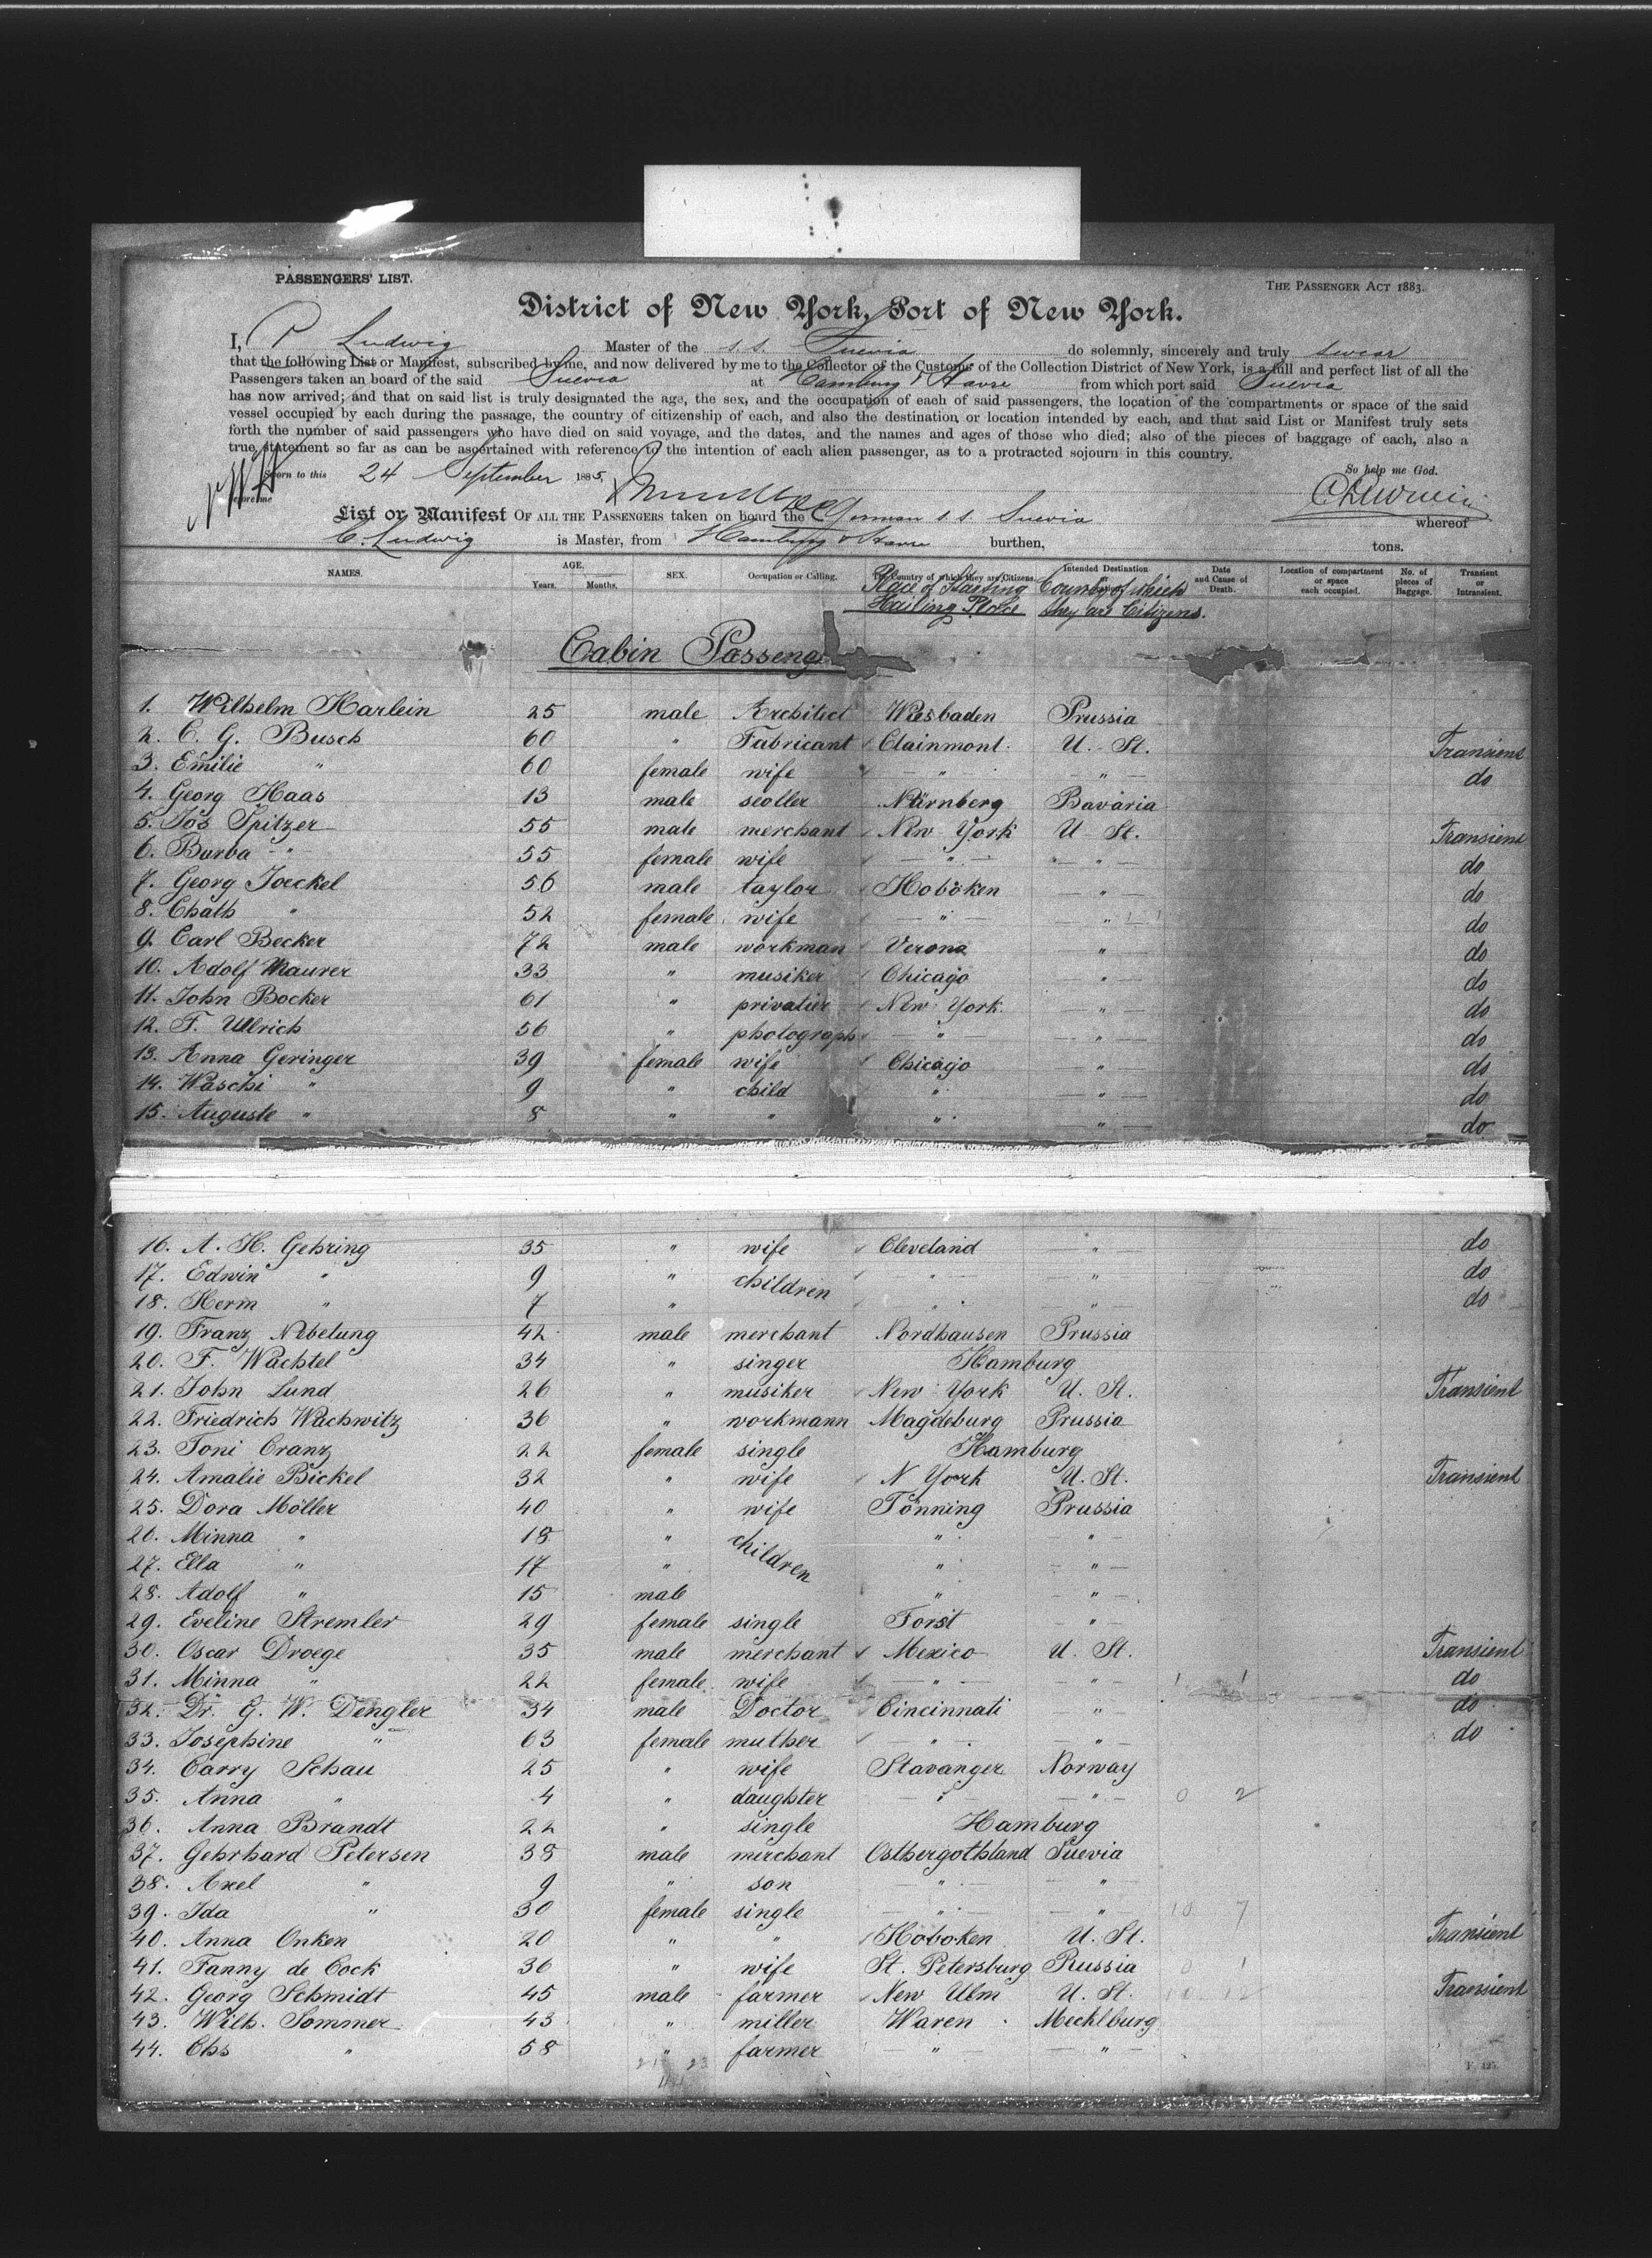 PASSENGERS' LIST.
THE PASSENGER ACT 1883.
District of New York, Port of New York.
I, Ludwig Master of the s.s. Suevia do solemnly, sincerely and truly swear
that the following List or Manifest, subscribed by me, and now delivered by me to the Collector of the Customs of the Collection District of New York, is a full and perfect list of all the
Passengers taken an board of the said Suevia at Hamburg & Havre from which port said Suevia
has now arrived; and that on said list is truly designated the age, the sex, and the occupation of each of said passengers, the location of the compartments or space of the said
vessel occupied by each during the passage, the country of citizenship of each, and also the destination or location intended by each, and that said List or Manifest truly sets
forth the number of said passengers who have died on said voyage, and the dates, and the names and ages of those who died; also of the pieces of baggage of each, also a
true statement so far as can be ascertained with reference to the intention of each alien passenger, as to a protracted sojourn in this country.
So help me God.
Sworn to this 24 September 1885,
before me
List or Manifest OF ALL THE PASSENGERS taken on board the German s.s. Suevia whereof
C. Ludwig is Master, from Hamburg & Havre burthen, tons.
NAMES. AGE. Years. Months. SEX. Occupation or Calling. The Country of which they are Citizens. Intended Destination or Date and Cause of Death. Location of compartment or space each occupied. No. of pieces of Baggage. Transient or Intransient.
Place of Starting Hailing Place County of which they are Citizens.
Cabin Passeng
1. Wilhelm Harlein 25 male Architect Wiesbaden Prussia
2. C. G. Busch 60 " Fabricant Clainmont. U. St. Transient
3. Emilie " 60 female wife " " do
4. Georg Haas 13 male scoller Nürnberg Bavaria
5. Jos Spitzer 55 male merchant New York U St. Transient
6. Barba " 55 female wife " " do
7. Georg Joeckel 56 male taylor Hoboken " do
8. Chath " 52 female wife " " do
9. Carl Becker 72 male workman Verona " do
10. Adolf Maurer 33 " musiker Chicago " do
11. John Bocker 61 " privatier New York. " do
12. F. Ullrich 56 " photograph " " do
13. Anna Geringer 39 female wife Chicago " do
14. Waschi " 9 " child " " do
15. Auguste " 8 " " " " do
16. A. H. Gehring 35 " wife Cleveland " do
17. Edwin " 9 " children " " do
18. Herm " 7 " " " do
19. Franz Nebelung 42 male merchant Nordhausen Prussia
20. F. Wachtel 34 " singer Hamburg
21. John Lund 26 " musiker New York U. St. Transient
22. Friedrich Wachwitz 36 " workmann Magdeburg Prussia
23. Toni Cranz 22 female single Hamburg
24. Amalie Bickel 32 " wife N York U. St. Transient
25. Dora Möller 40 " wife Tönning Prussia
26. Minna " 18 " children " "
27. Ella " 17 " " "
28. Adolf " 15 male " "
29. Eveline Stremler 29 female single Forst "
30. Oscar Droege 35 male merchant Mexico U. St. Transient
31. Minna " 22 female wife " " do
32. Dr. G. W. Dengler 34 male Doctor Cincinnati " do
33. Josephine " 63 female muther " " do
34. Carry Schau 25 " wife Stavanger Norway
35. Anna " 4 " daughter " " 0 2
36. Anna Brandt 22 " single Hamburg
37. Gehrhard Petersen 38 male merchant Osthergothland Suevia
38. Axel " 9 " son " "
39. Ida " 30 female single " " 10 7
40. Anna Onken 20 " " Hoboken U. St. Transient
41. Fanny de Cock 36 " wife St. Petersburg Russia 0 1
42. Georg Schmidt 45 male farmer New Ulm U. St. 10 12 Transient
43. Wilh. Sommer 43 " miller Waren Mechlburg
44. Chs " 58 " farmer " "
21 23
44
F. 425.